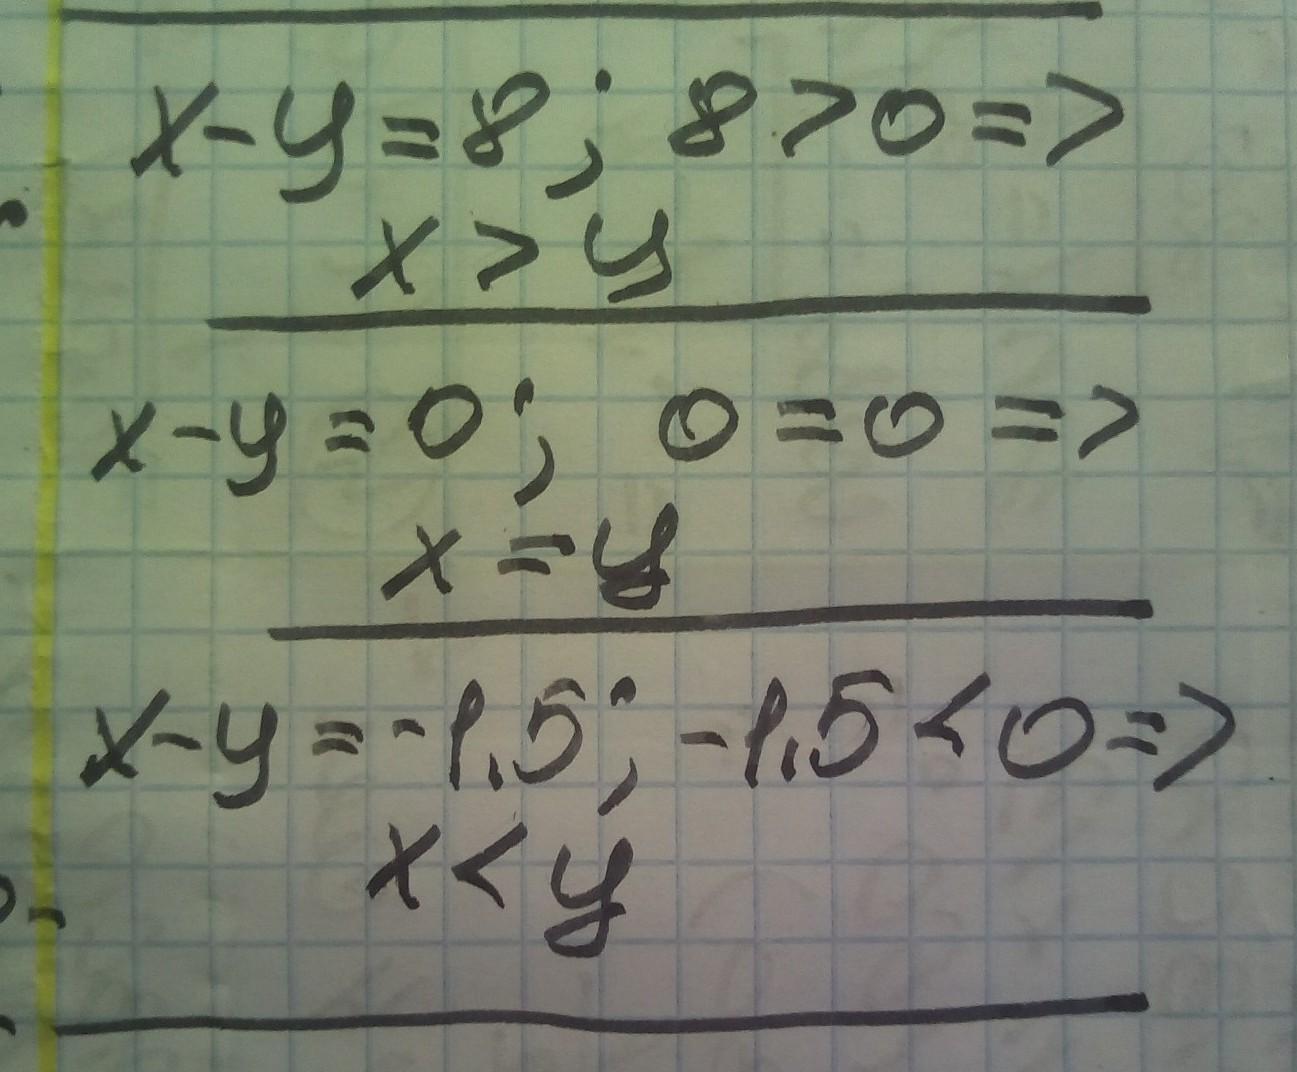 x-y=8; 8>0=>
x>y
x-y=0; 0=0=>
x=y
x-y=-1,5; -1,5<0=>
x<y